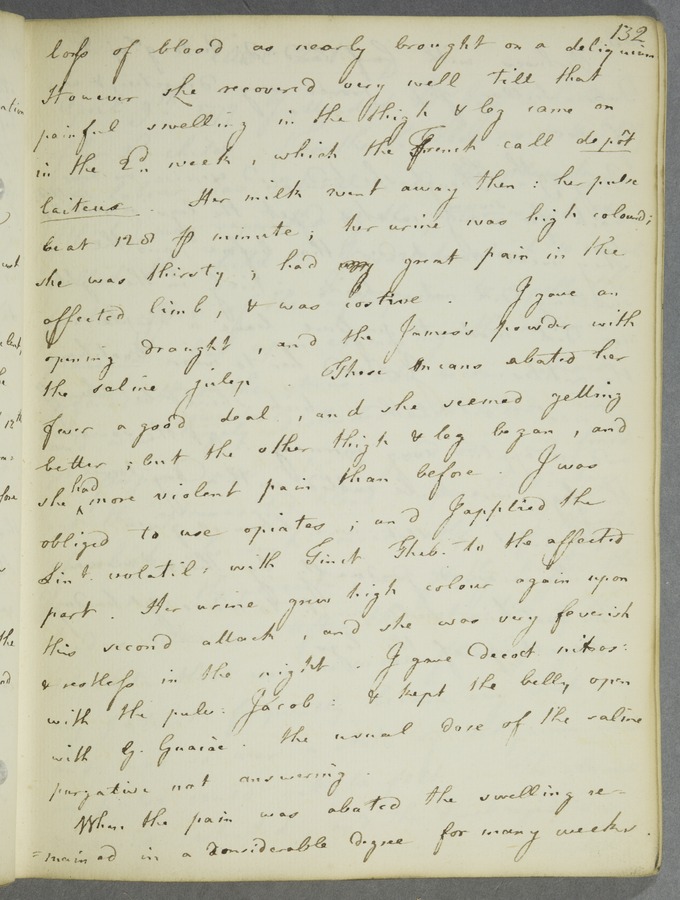 132
loss of blood as nearly brought on a deliquium
However she recovered very well till that
painful swelling in the thigh & leg came on
in the 2d. week, which the French call depôt
laiteux. Her milk went away then: her pulse
beat 128 p minute; her urine was high colour'd;
she was thirsty; had great pain in the
affected limb, & was costive. I gave an
opening draught, and the James's powder with
the saline julep. These means abated her
fever a good deal, and she seemed getting
better; but the other thigh & leg began, and
she had more violent pain than before. I was
obliged to use opiates; and I applied the
Lint. volatil: with Tinct Theb. to the affected
part. Her urine grew high colour again upon
this second attack, and she was very feverish
& restless in the night. I gave Decoct. nitros:
with the pulv. Jacob: & kept the belly open
with G. Guaiac. the usual dose of the saline
purgative not answering.
When the pain was abated the swelling re-
=mained in a considerable degree for many weeks.